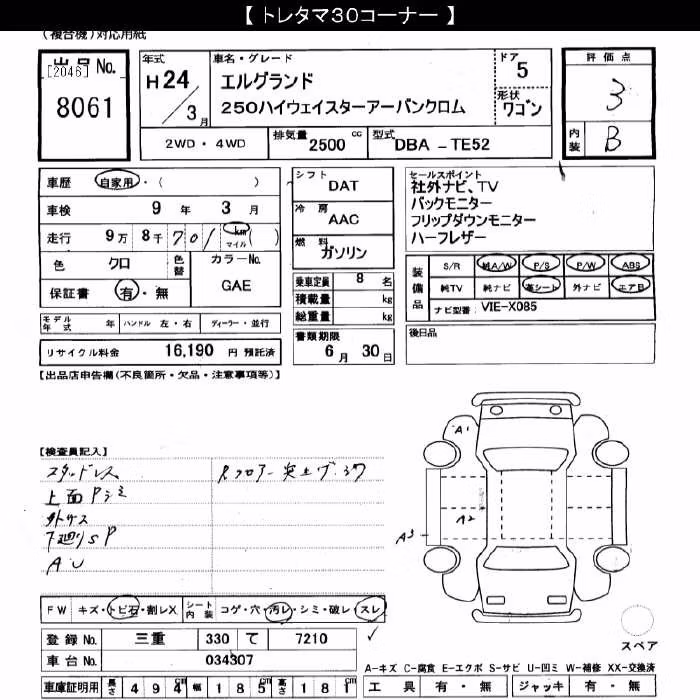 【 トレタマ30コーナー 】
(複合機)対応用紙
出品No.
[2046]
8061
年式 H24/3月
車名・グレード
エルグランド
250ハイウェイスターアーバンクロム
ドア 5
形状 ワゴン
評価点
3
内装 B
2WD・4WD
排気量 2500 cc
型式 DBA - TE52
車歴 自家用・( )
車検 9年 3月
走行 9万8千701 km マイル ( )
色 クロ 色替
カラーNo. GAE
保証書 有・無
モデル年式 年 ハンドル 左・右 ディーラー・並行
リサイクル料金 16,190 円 預託済
シフト DAT
冷房 AAC
燃料 ガソリン
乗車定員 8 名
積載量 kg
総重量 kg
書類期限
6月 30日
セールスポイント
社外ナビ、TV
バックモニター
フリップダウンモニター
ハーフレザー
装備品
S/R 純A/W P/S P/W ABS
純TV 純ナビ 革シート 外ナビ エアB
ナビ型番 VIE-X085
後日品
【出品店申告欄(不良箇所・欠品・注意事項等)】
【検査員記入】
スタッドレス
上面Pシミ
外キス
下廻りSP
AU
Rフロアー突上ゲ
A1
A2
A3
FW キズ・トビ石・割レX シート内装 コゲ・穴・汚レ・シミ・破レ・スレ
登録No. 三重 330 て 7210
車台No. 034307
車庫証明用 長さ 494cm 幅 185cm 高さ 181cm
スペア
A-キズ C-腐食 E-エクボ S-サビ U-凹ミ W-補修 XX-交換済
工具 有・無 ジャッキ 有・無